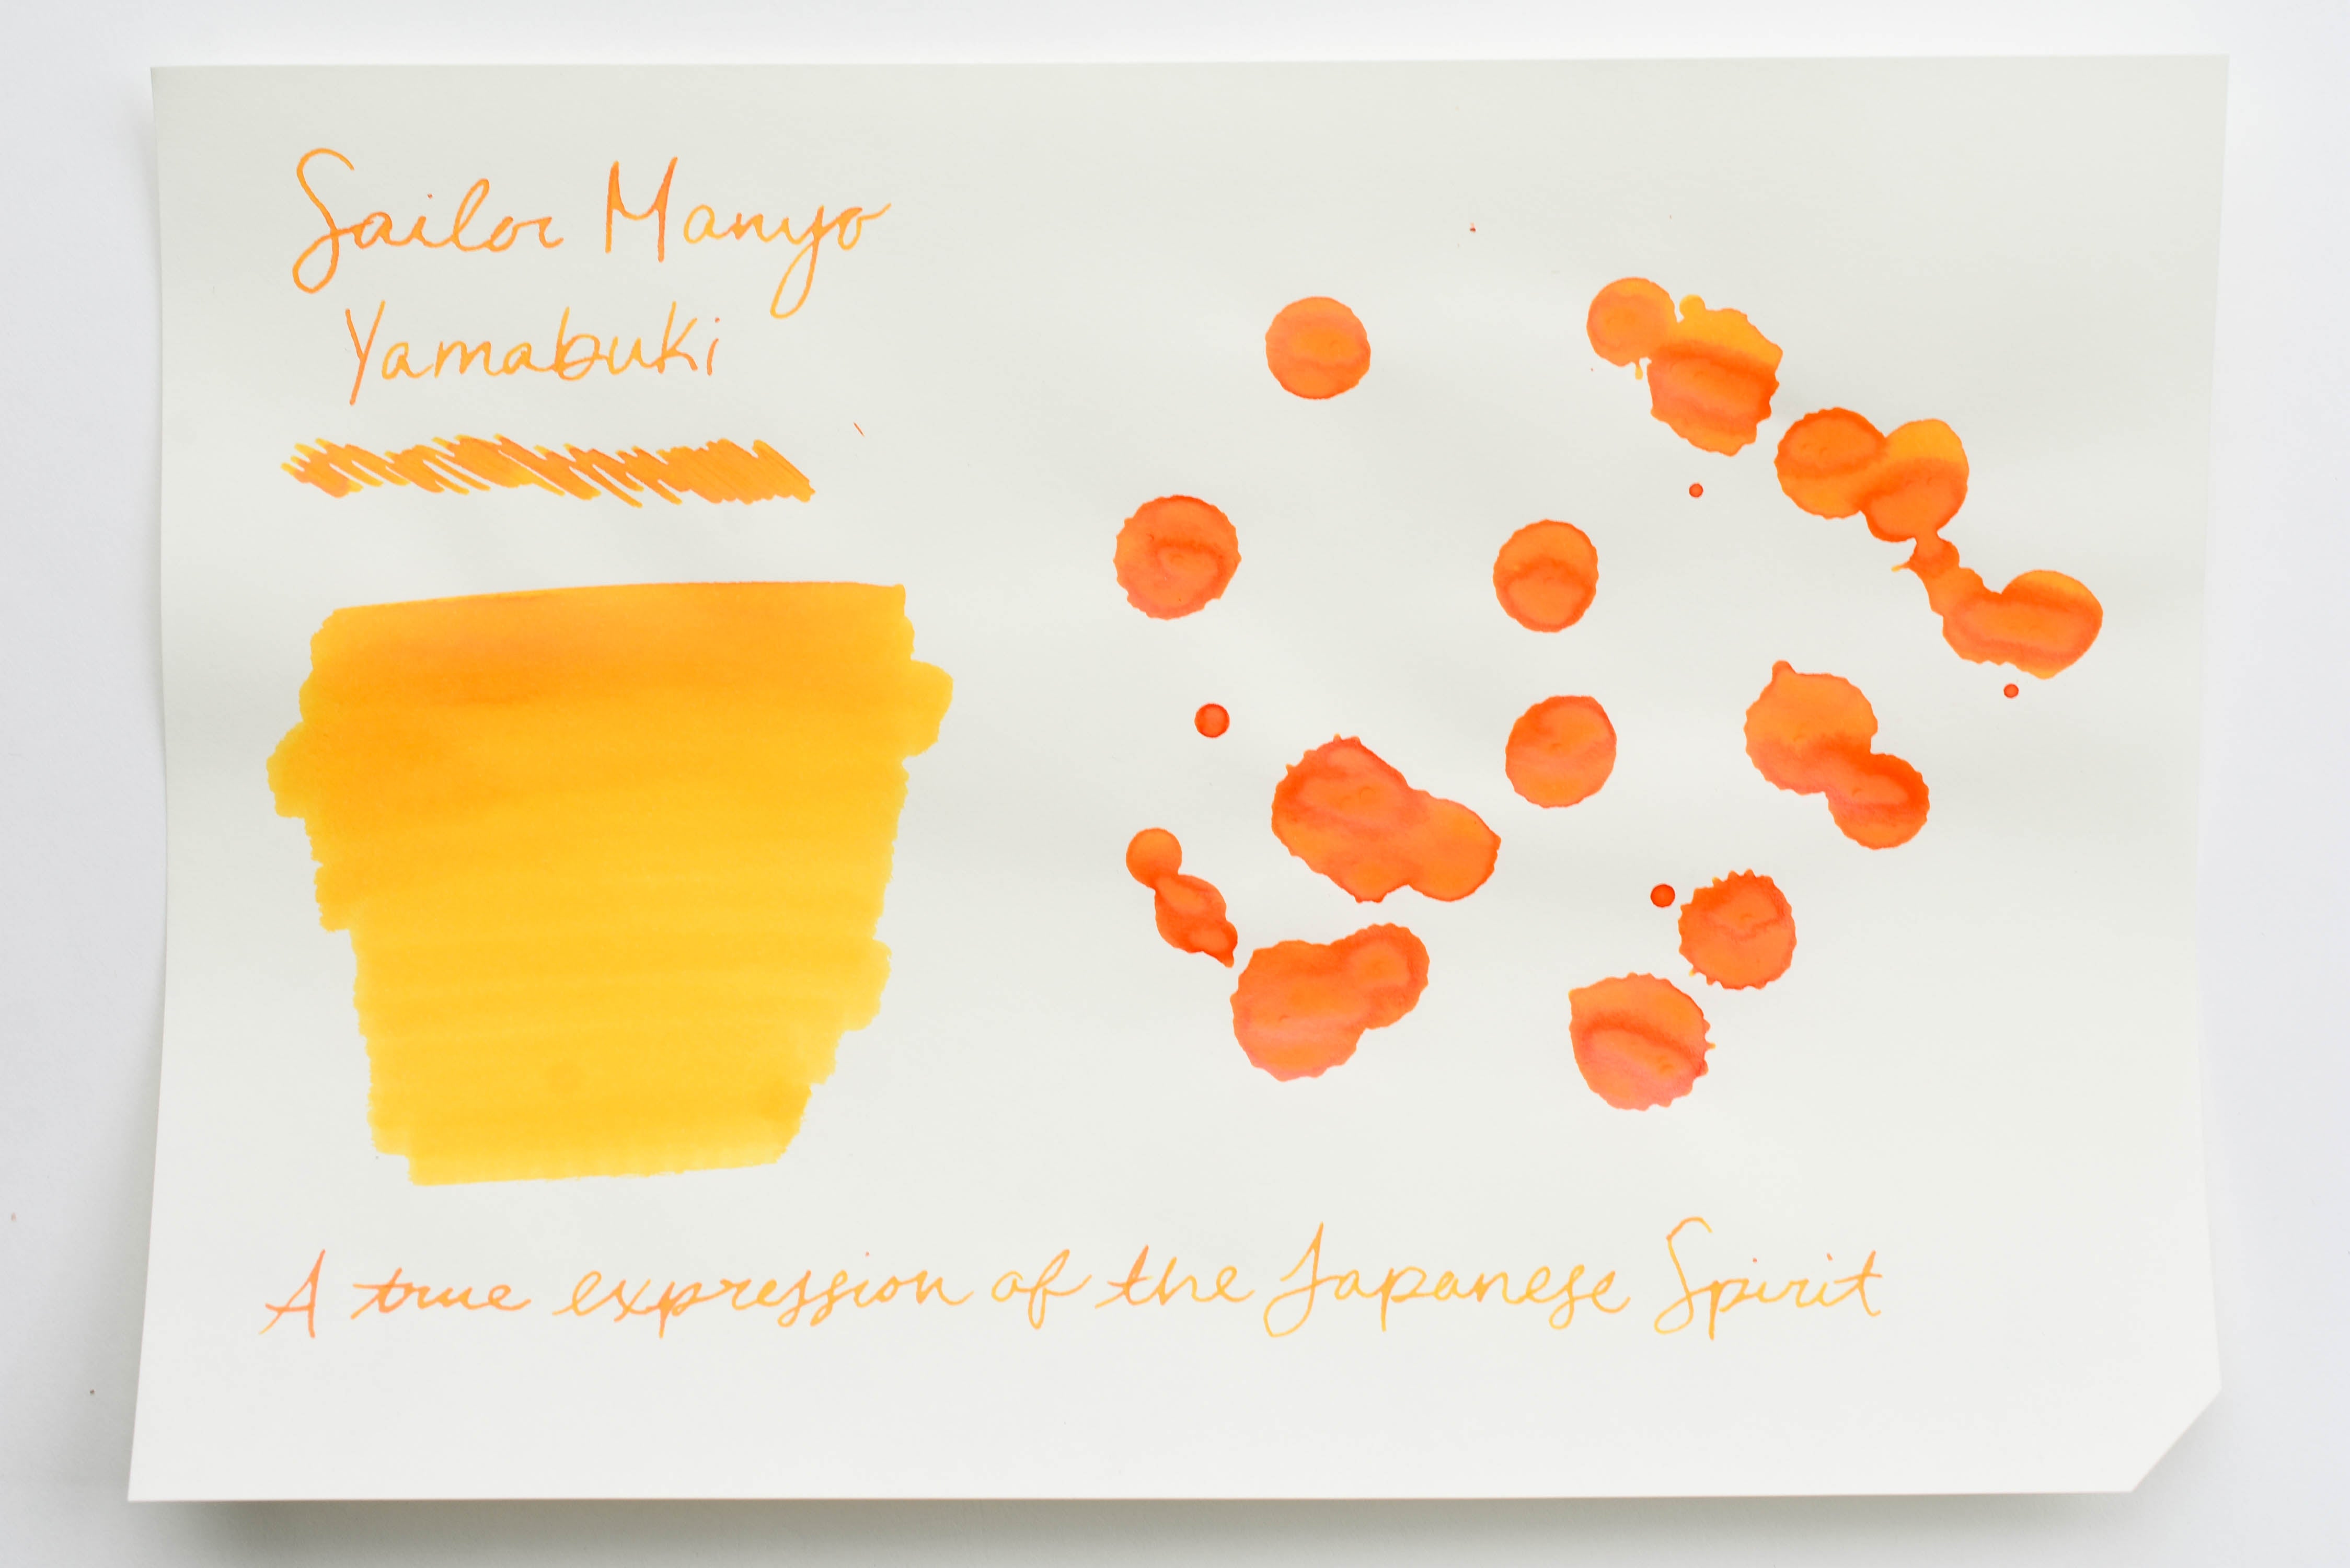 Sailor Manyo
Yamabuki
A true expression of the Japanese Spirit